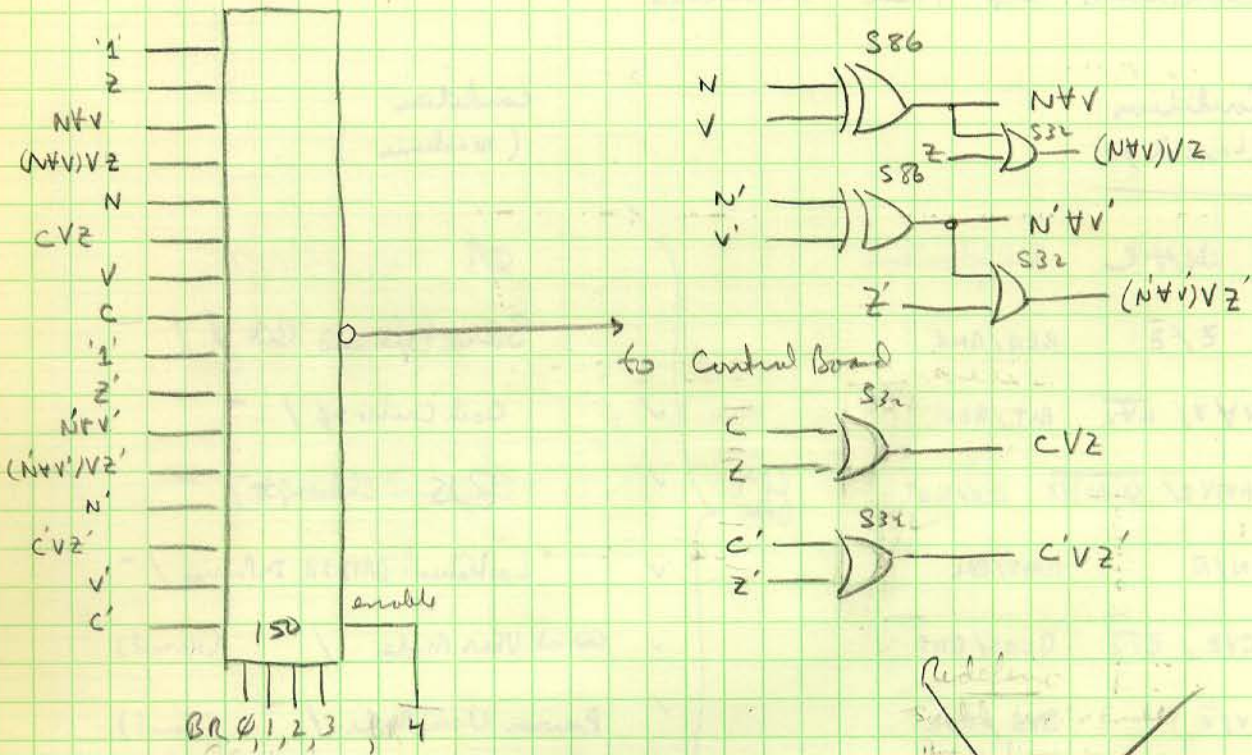 '1'
Z
N∀V
(N∀V)VZ
N
CVZ
V
C
'1'
Z'
N'∀V'
(N'∀V')VZ'
N'
C'VZ'
V'
C'
150
enable
BR 0, 1, 2, 3, 4
to Control Board
S86
N
V
N∀V
S32
Z
(N∀V)VZ
S86
N'
V'
N'∀V'
S32
Z'
(N'∀V')VZ'
S32
C
Z
CVZ
S32
C'
Z'
C'VZ'